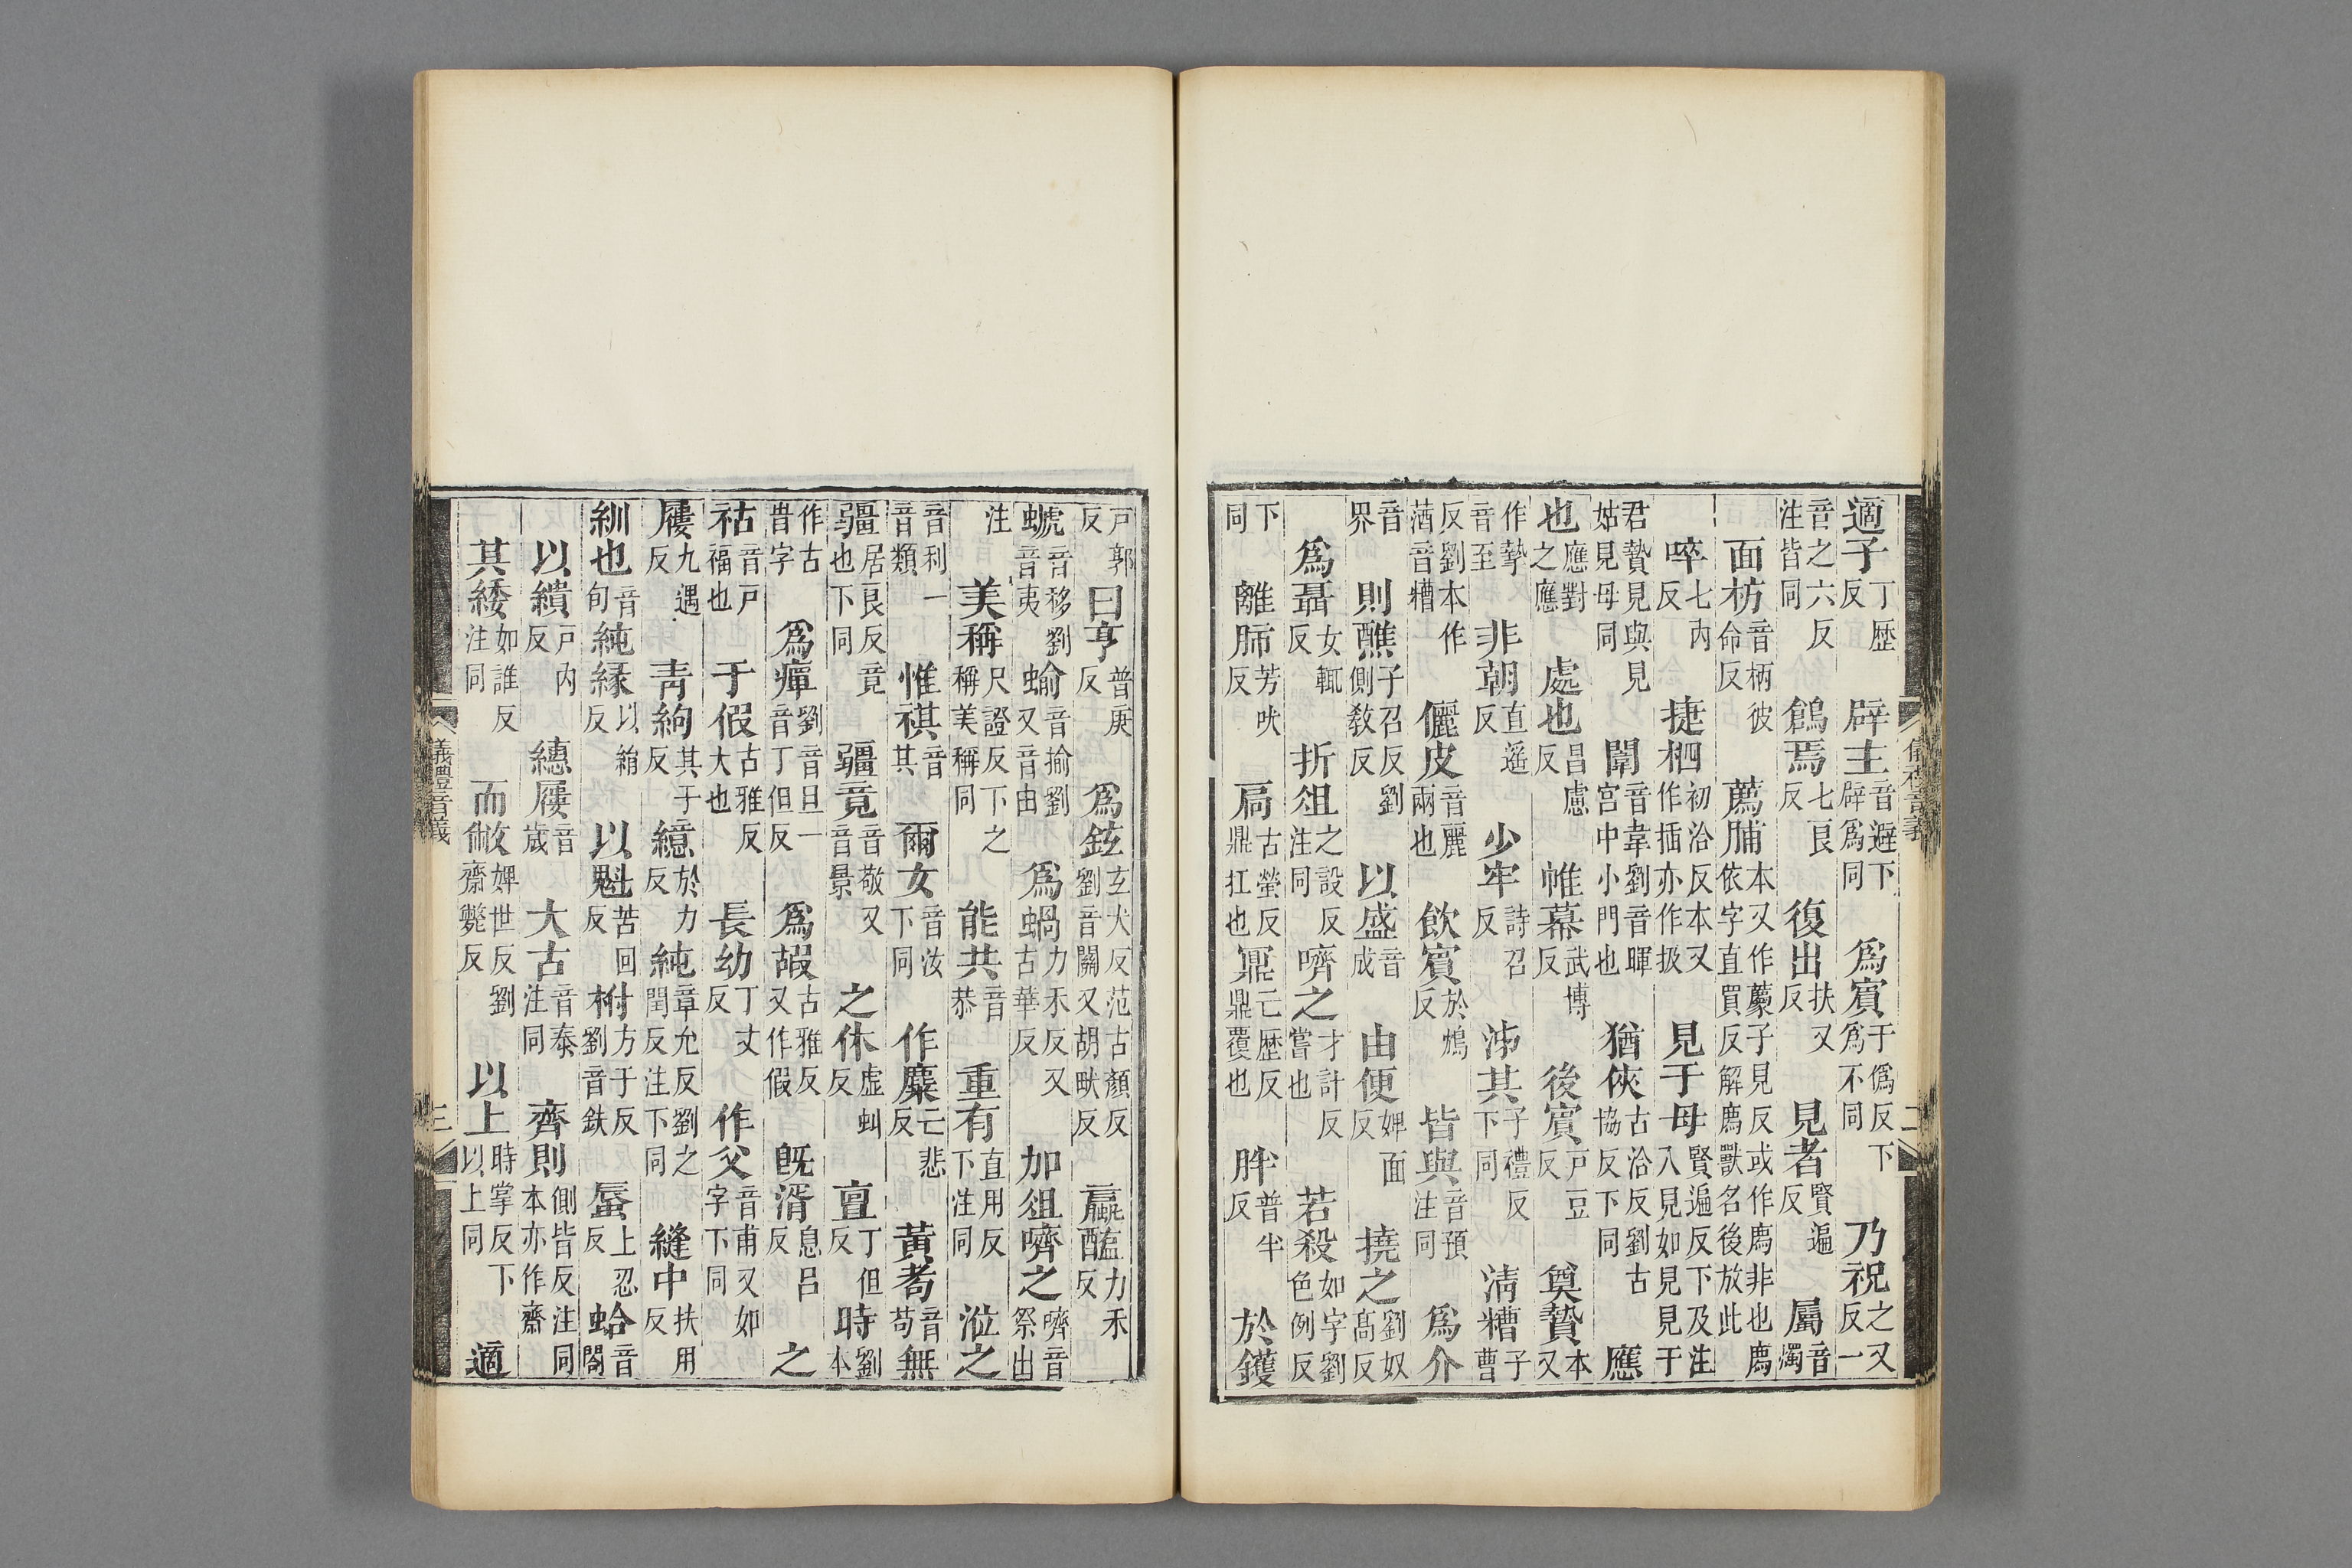 適子丁歷反 辟主音避下辟爲同 爲賓于僞反下爲不同 乃祝之又反一
音之六反注皆同 鶬焉七良反 復出扶又反 見者賢遍反 屬音燭
面枋音柄彼命反 薦脯本又作藨子見反或作廌非也廌依字直買反解廌獸名後放此
啐七内反 捷柶初洽反本又作插亦作扱 見于母賢遍反下及注入見如見見于
君贄見與見姑見母同 闈音韋劉音暉宮中小門也 猶俠古洽反劉古協反下同 應
也應對之應 處也昌慮反 帷幕武博反 後賓戸豆反 奠贄本又
作摯音至 非朝直遥反 少牢詩召反 泲其子禮反下同 清糟子曹
反劉本作音糟 儷皮音麗兩也 飲賓於鴆反 皆與音預注同 爲介
音界 則醮子召反劉側敎反 以盛音成 由便婢面反 撓之劉奴高反
爲聶女輒反 折俎之設反注同 嚌之才計反嘗也 若殺如字劉色例反
下同 離肺芳吠反 扃古螢反鼎扛也 鼏亡歷反鼎覆也 胖普半反 於鑊
儀禮音義 二
戸郭反 曰亨普庚反 爲鉉玄犬反范古顏反劉音關又胡畎反 蠃醢力禾反
螔音移劉音夷 蝓音揄劉又音由 爲蝸力禾反又古華反 加俎嚌之嚌音祭出
注 美稱尺證反下之稱美稱同 能共音恭 重有直用反下注同 涖之
音利一音類 惟祺音其 爾女音汝下同 作麋亡悲反 黃耇音苟 無
疆居良反竟也下同 疆竟音敬又音景 之休虛虯反 亶丁但反 時劉本
作古旹字 爲癉劉音旦一音丁但反 爲嘏古雅反又作假 旣湑息呂反 之
祜音戸福也 于假古雅反大也 長幼丁丈反 作父音甫又如字下同
屨九遇反 靑絇其于反 繶於力反 純章允反劉之閏反注下同 縫中扶用反
紃也音旬 純緣以絹反 以魁苦回反 柎方于反劉音鈇 蜃上忍反 蛤音閤
以繢戸内反 繐屨音歲 大古音泰注同 齊則側皆反注同本亦作齋
其緌如誰反注同 而敝婢世反劉齋斃反 以上時掌反下以上同 適
儀禮音義 三